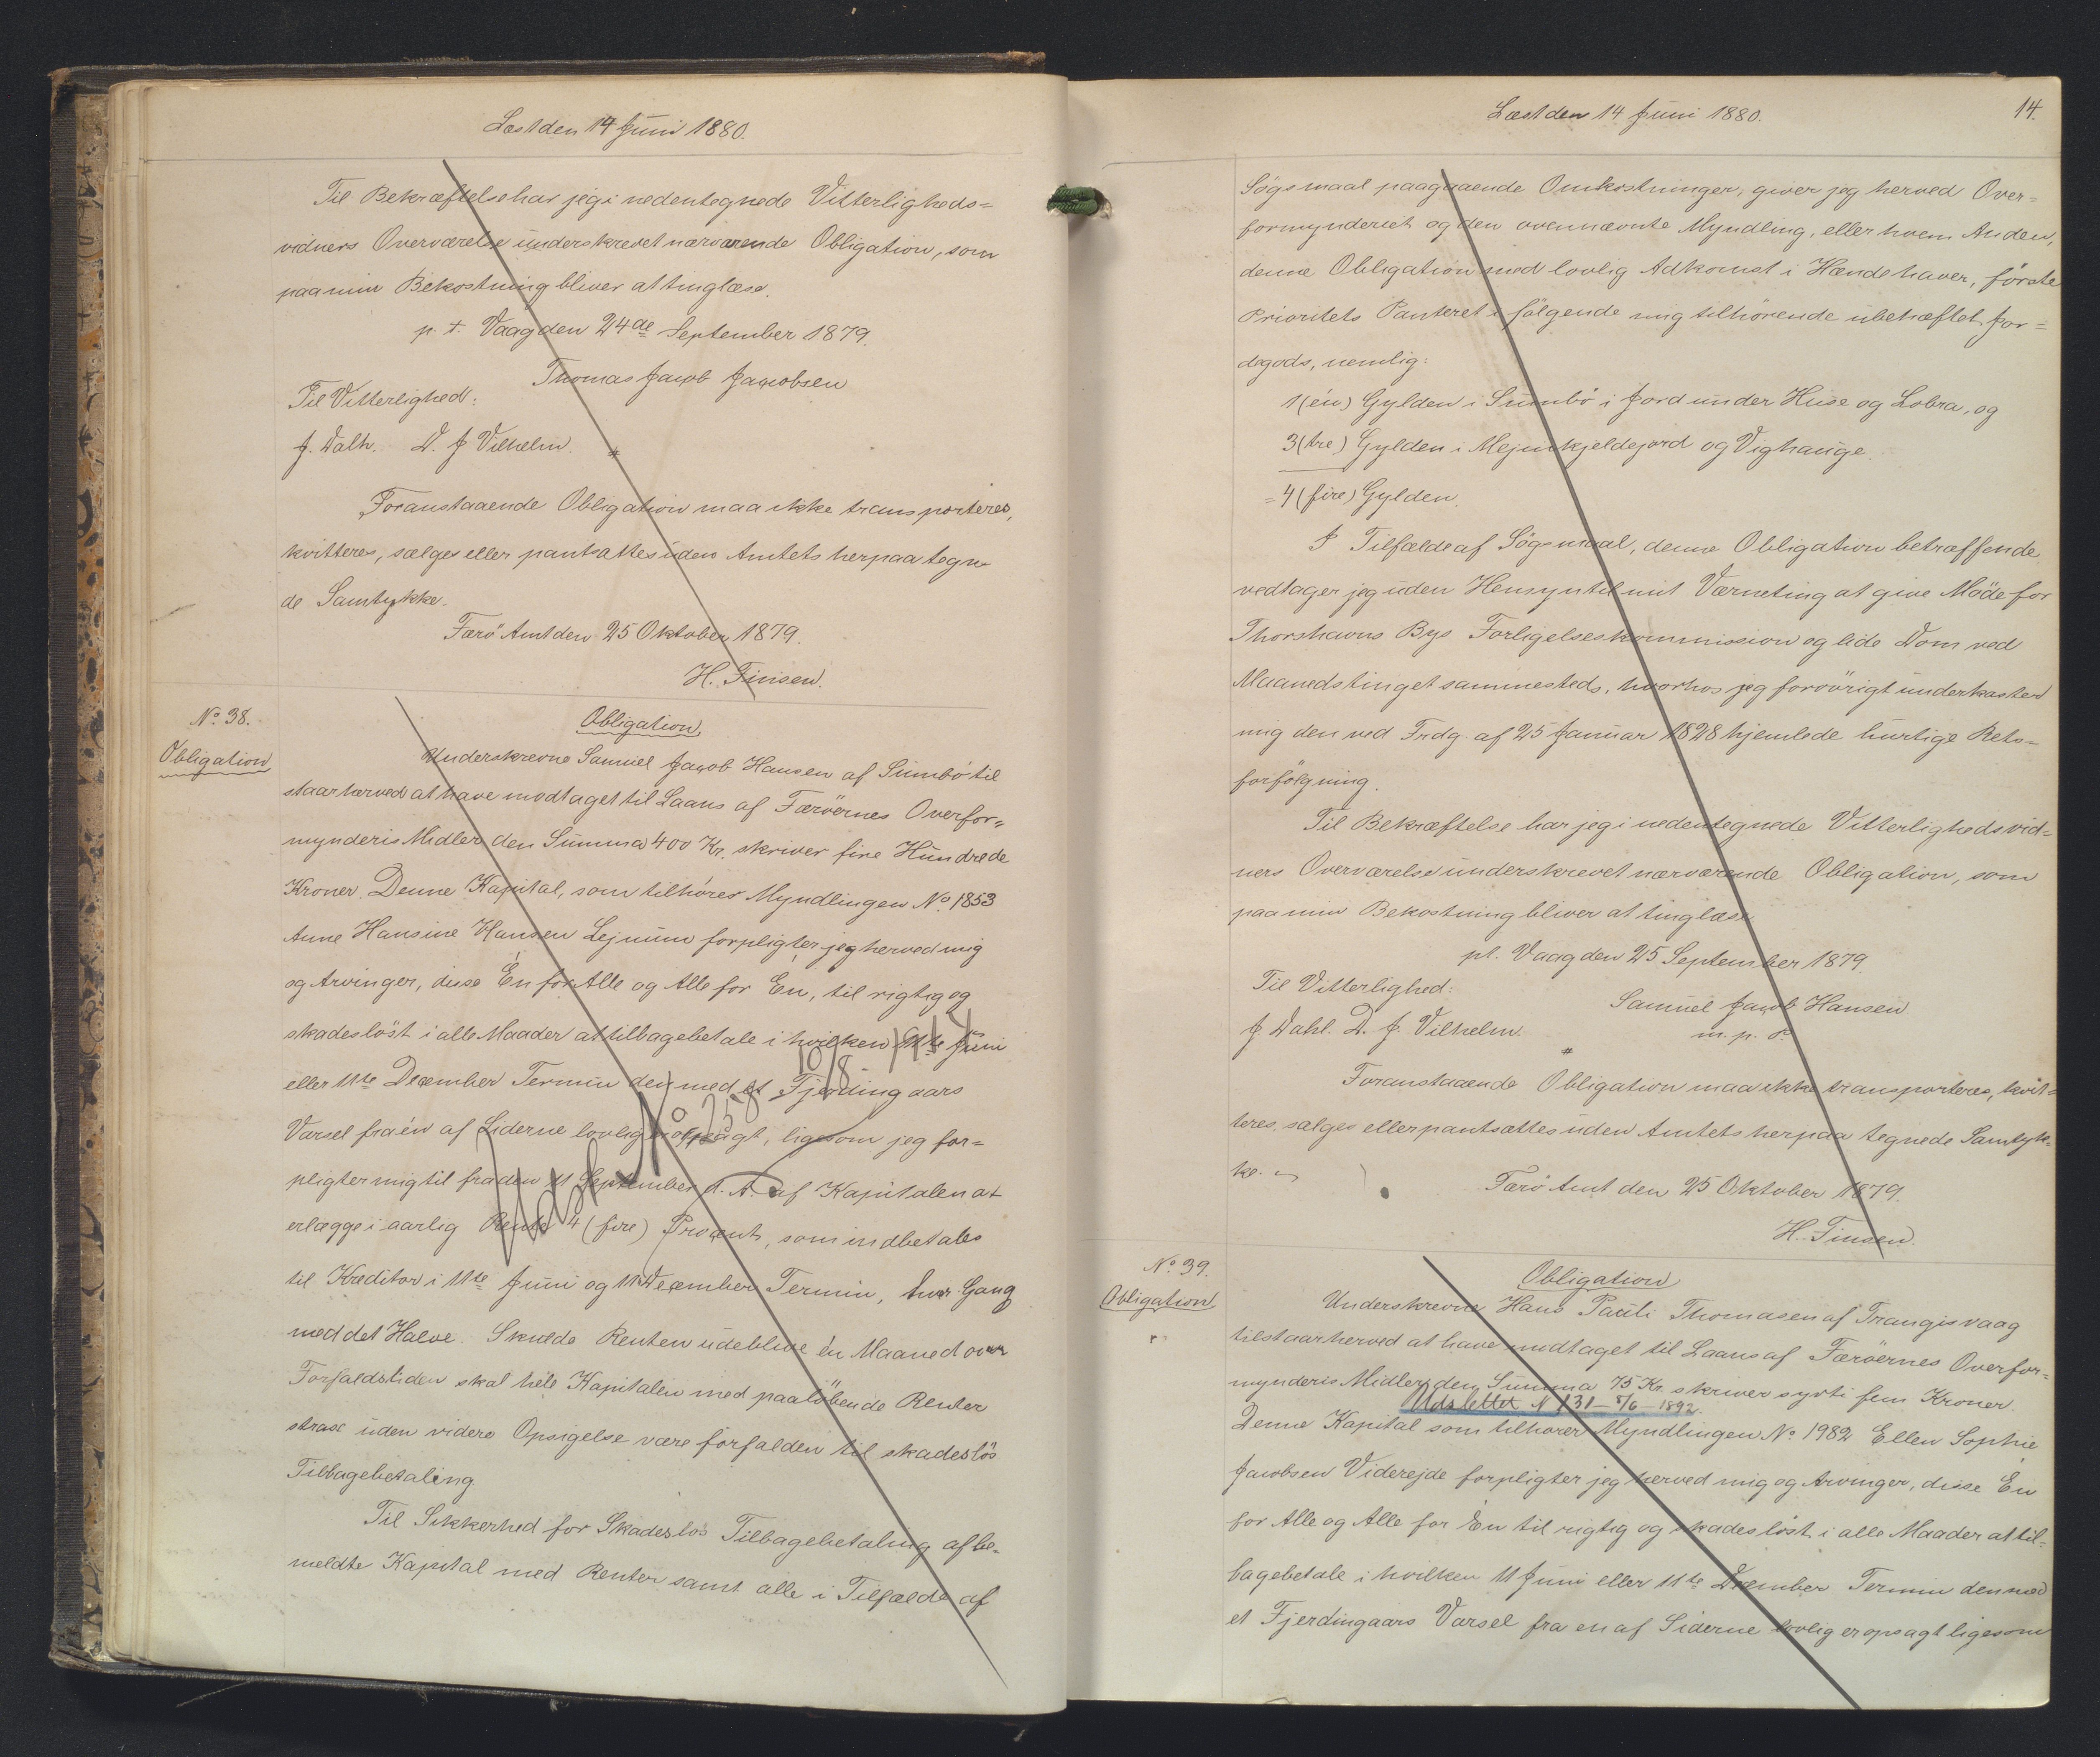 Læst den 14 Juni 1880.
Til Bekræftelse har jeg i nedentegnede Vitterligheds=
vidners Overværelse underskrevet nærværende Obligation, som
paa min Bekostning bliver at tinglæse.
p. t. Vaag den 24de September 1879.
Thomas Jacob Jacobsen
Til Vitterlighed:
J. Dalh. D. J Vilhelm.
Foranstaaende Obligation maa ikke transporteres,
kvitteres, sælges eller pantsættes uden Amtets herpaa tegne
de Samtykke.
Færö Amt den 25 Oktober 1879.
H. Finsen.
No. 38.
Obligation
Obligation.
Underskrevne Samuel Jacob Hansen af Sumbö til
staar herved at have modtaget til Laans af Færöernes Overfor=
mynderis Midler den Summa 400 Kr. skriver fire Hundrede
Kroner. Denne Kapital, som tilhörer Myndlingen No. 1853
Anne Hansine Hansen Lejnum forpligter jeg herved mig
og Arvinger, disse Én for Alle og Alle for Én, til rigtig og
skadeslöst i alle Maader at tilbagebetale i hvilken 11te Juni
eller 11te December Termin den med et Fjerdingaars
Varsel fra én af Siderne lovlig er opsagt, ligesom jeg for=
pligter mig til fra den 11 September d. A. af Kapitalen at
erlægge i aarlig Rente 4 (fire) Procent, som indbetales
til Kreditor i 11te Juni og 11 December Termin, hver Gang
med det Halve. Skulde Renten udeblive én Maaned over
Forfaldstiden skal hele Kapitalen med paalöbende Renter
strax uden videre Opsigelse være forfalden til skadeslös
Tilbagebetaling
Til Sikkerhed for Skadeslos Tilbagebetaling af be-
meldte Kapital med Renter samt alle i Tilfælde af
Læst den 14 Juni 1880.
14.
Sögsmaal paagaaende Omkostninger, giver jeg herved Over=
formynderiet og den ovennævnte Myndling, eller hvem Anden,
denne Obligation med lovlig Adkomst i Hænde haver, förste
Prioritets Panteret i fölgende mig tilhörende ubehæftet Jor=
degods, nemlig:
1 (én) Gylden i Sumbö i Jord under Huse og Lobra, og
3 (tre) Gylden i Mejunkjeldejord og Vighauge.
= 4 (fire) Gylden.
I Tilfælde af Sögsmaal, denne Obligation betræffende
vedtager jeg uden Hensyn til mit Værneting at give Möde for
Thorshavns Bys Forligelseskommission og lide Dom ved
Maanedstinget sammesteds, hvorhos jeg forövrigt underkaster
mig den ved Frdg. af 25 Januar 1828 hjemlede hurtige Rets=
forfölgning.
Til Bekræftelse har jeg i nedentegnede Vitterlighedsvid=
ners Overværelse underskrevet nærværende Obligation, som
paa min Bekostning bliver at tinglæse
pt. Vaag den 25 September 1879.
Til Vitterlighed:
Samuel Jacob Hansen
J Dahl. D. J. Vilhelm.
m. p. s.
Foranstaaende Obligation maa ikke transporteres, kvit=
teres, sælges eller pantsættes uden Amtets herpaa tegnede Samtyk=
ke.
Færö Amt den 25 Oktober 1879.
H. Finsen.
No. 39.
Obligation
Obligation
Underskrevne Hans Pauli Thomasen af Trangisvaag
tilstaar herved at have modtaget til Laans af Færöernes Overfor=
mynderis Midler den Summa 75 Kr. skriver syvti fem Kroner.
Udslettet N 131 – 8/6 – 1892.
Denne Kapital som tilhorer Myndlingen No. 1982 Ellen Sophie
Jacobsen Viderejde forpligter jeg herved mig og Arvinger, disse Én
for Alle og Alle for Én til rigtig og skadeslöst i alle Maader at til=
bagebetale i hvilken 11 Juni eller 11te December Termin den med
et Fjerdingaars Varsel fra en af Siderne lovlig er opsagt ligesom